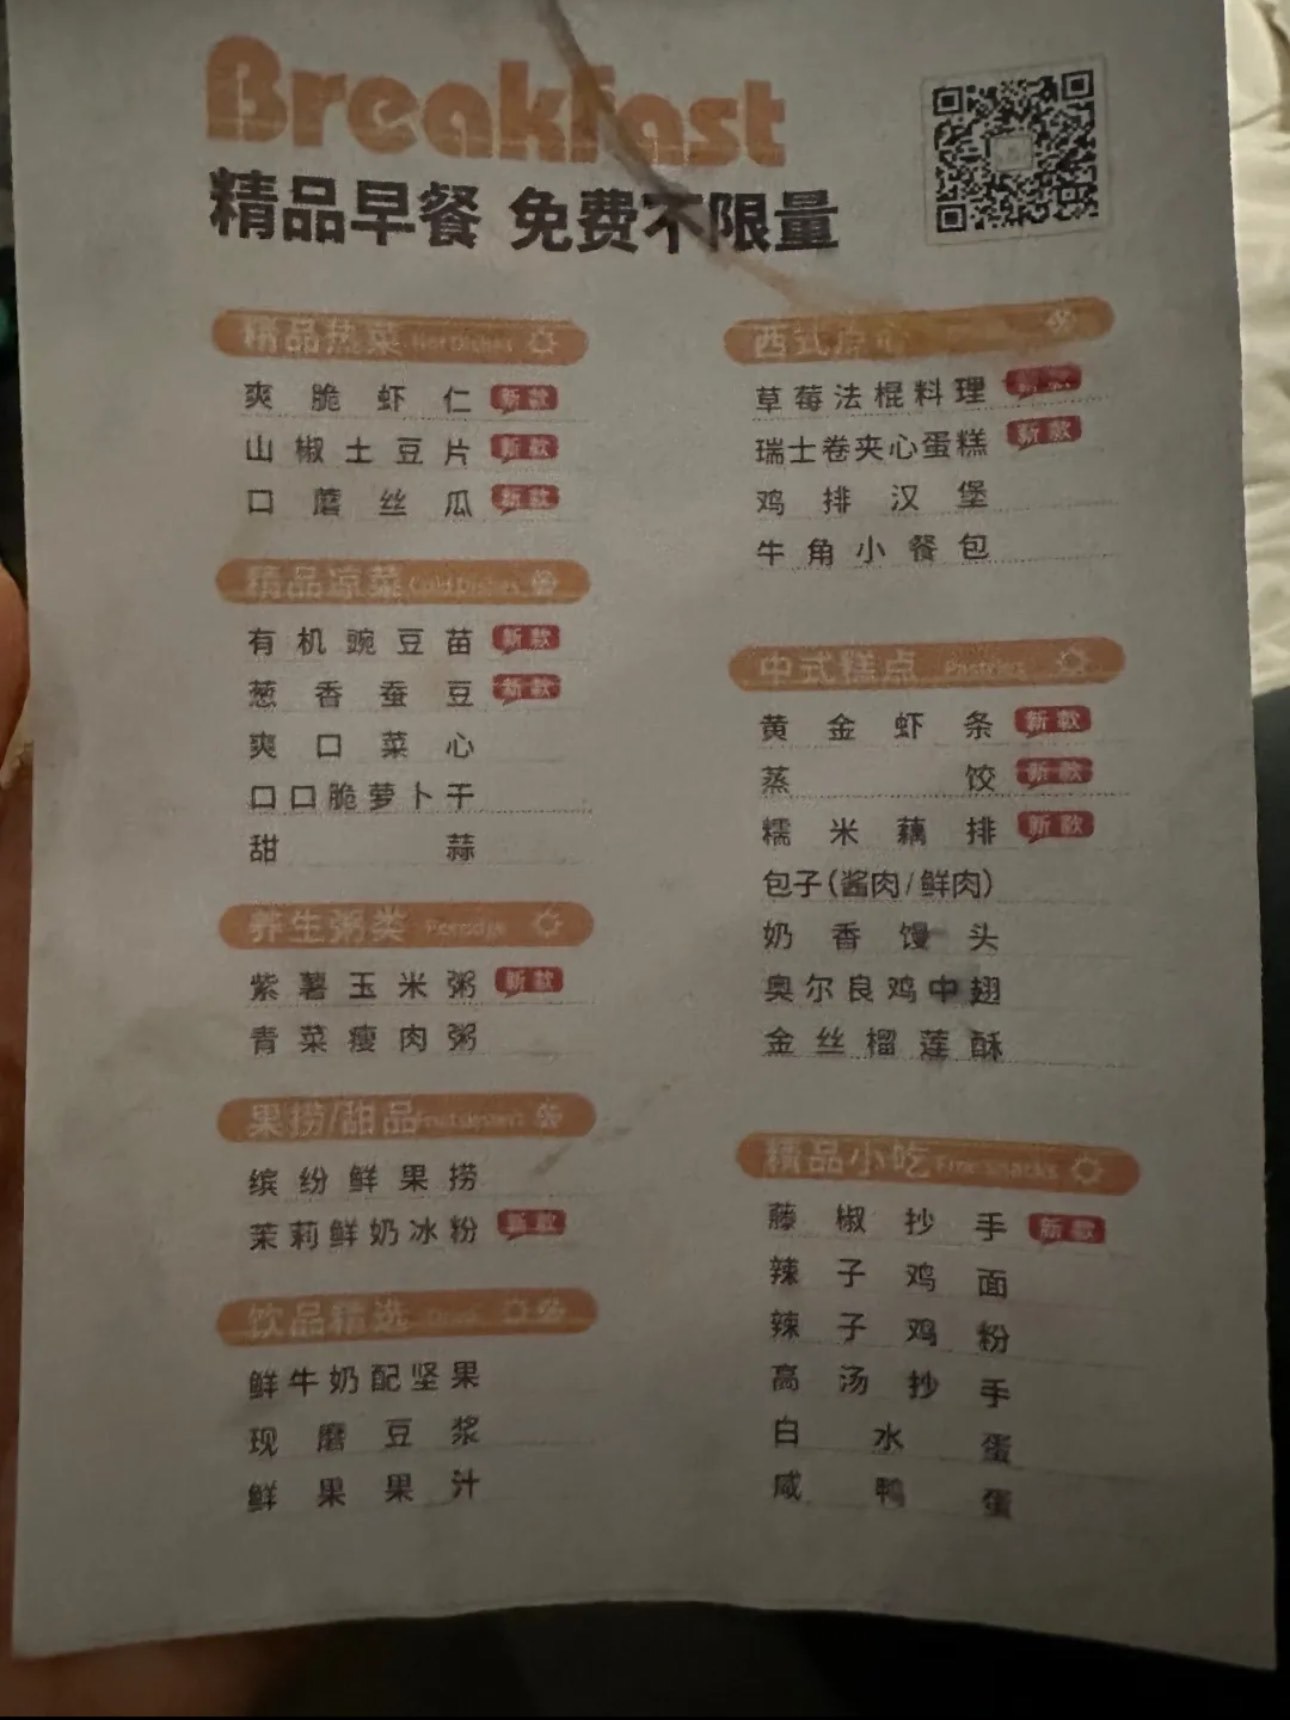 Breakfast
精品早餐 免费不限量
精品热菜 Hot Dishes
爽脆虾仁 新款
山椒土豆片 新款
口蘑丝瓜 新款
精品凉菜 Cold Dishes
有机豌豆苗 新款
葱香蚕豆 新款
爽口菜心
口口脆萝卜干
甜蒜
养生粥类 Porridge
紫薯玉米粥 新款
青菜瘦肉粥
果捞/甜品
缤纷鲜果捞
茉莉鲜奶冰粉 新款
饮品精选 Drink
鲜牛奶配坚果
现磨豆浆
鲜果果汁
西式点心
草莓法棍料理 新款
瑞士卷夹心蛋糕 新款
鸡排汉堡
牛角小餐包
中式糕点 Pastries
黄金虾条 新款
蒸饺 新款
糯米藕排 新款
包子(酱肉/鲜肉)
奶香馒头
奥尔良鸡中翅
金丝榴莲酥
精品小吃 Fine snacks
藤椒抄手 新款
辣子鸡面
辣子鸡粉
高汤抄手
白水蛋
咸鸭蛋